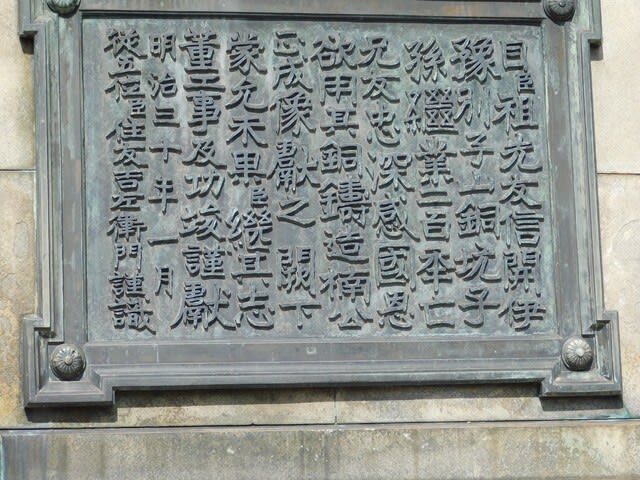 自臣祖先友信開伊
豫別子山銅坑子
孫繼業二百年亡
兄友忠深感國恩
欲用其銅鑄造楠公
正成像獻之闕下
蒙允未果臣繼其志
董工事及功竣謹獻
明治三十年一月
從五位臣住友吉左衛門謹識